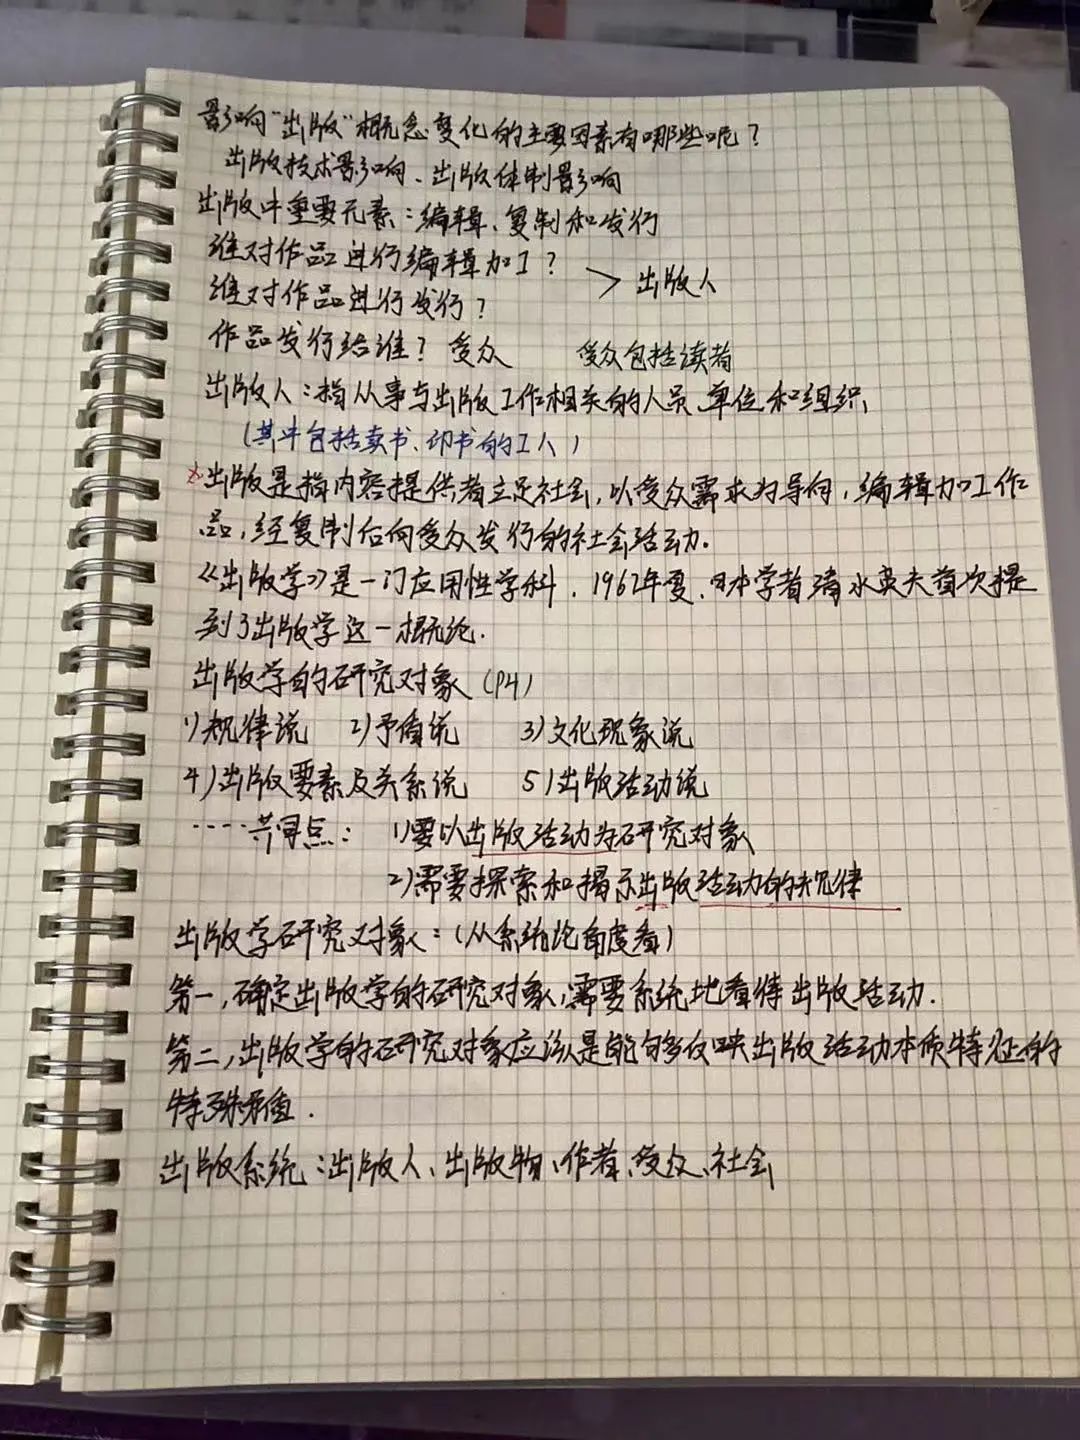 影响“出版”概念变化的主要因素有哪些呢？
出版技术影响、出版体制影响
出版中重要元素：编辑、复制和发行
谁对作品进行编辑加工？
谁对作品进行发行？
> 出版人
作品发行给谁？ 受众 受众包括读者
出版人：指从事与出版工作相关的人员、单位和组织、
（其中包括卖书、印书的工人）
*出版是指内容提供者立足社会，以受众需求为导向，编辑加工作
品，经复制后向受众发行的社会活动.
《出版学》是一门应用性学科. 1967年夏，日本学者清水英夫首次提
到了出版学这一概论.
出版学的研究对象（P4）
1)规律说 2)矛盾说 3)文化现象说
4)出版要素及关系说 5)出版活动说
……共同点： 1)要以出版活动为研究对象
2)需要探索和揭示出版活动的规律
出版学研究对象：（从系统论角度看）
第一，确定出版学的研究对象，需要系统地看待出版活动.
第二，出版学的研究对象应该是能够反映出版活动本质特征的
特殊矛盾.
出版系统：出版人、出版物、作者、受众、社会